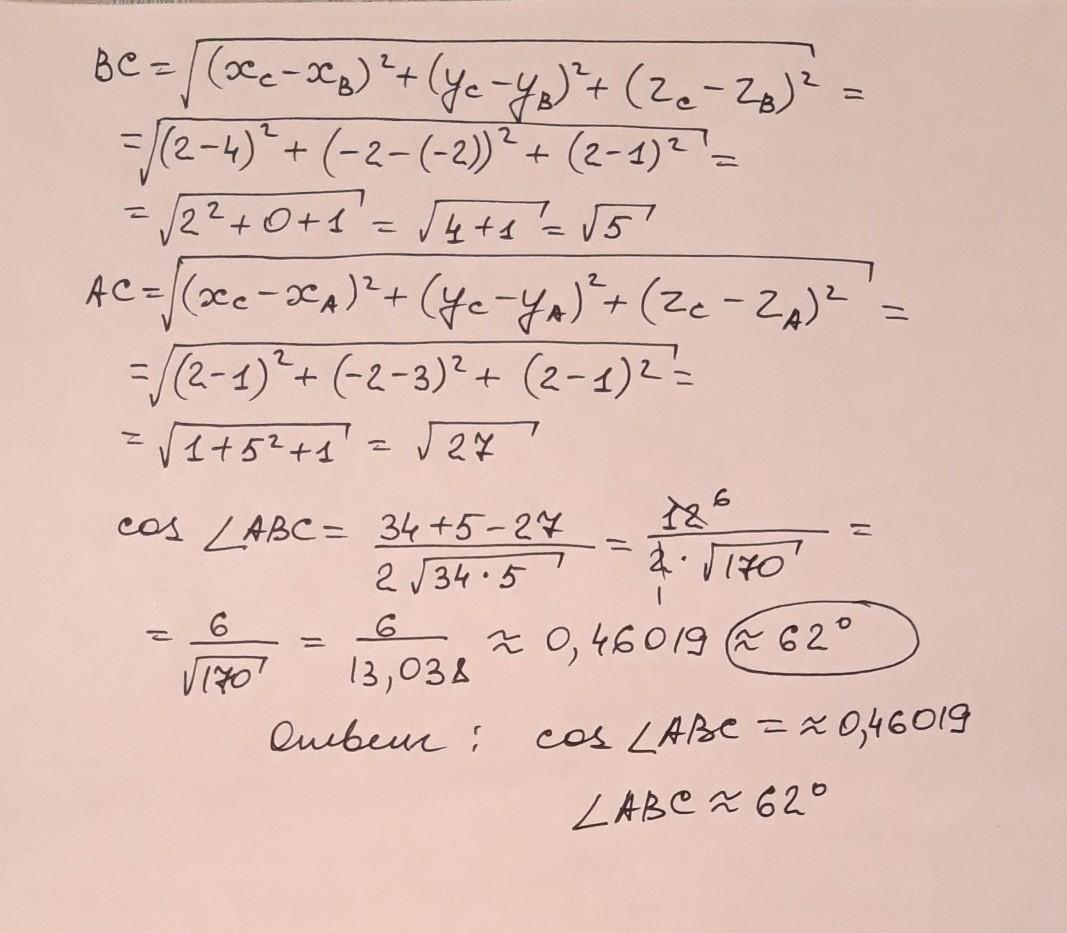 BC = √((x_C − x_B)² + (y_C − y_B)² + (z_C − z_B)²) =
= √((2−4)² + (−2−(−2))² + (2−1)²) =
= √(2² + 0 + 1) = √(4+1) = √5
AC = √((x_C − x_A)² + (y_C − y_A)² + (z_C − z_A)²) =
= √((2−1)² + (−2−3)² + (2−1)²) =
= √(1+5²+1) = √27
cos ∠ABC = (34+5−27)/(2√(34·5)) = 12 6/(2 1 · √170) =
= 6/√170 = 6/13,038 ≈ 0,46019 ≈ 62°
Ответ : cos ∠ABC = ≈ 0,46019
∠ABC ≈ 62°